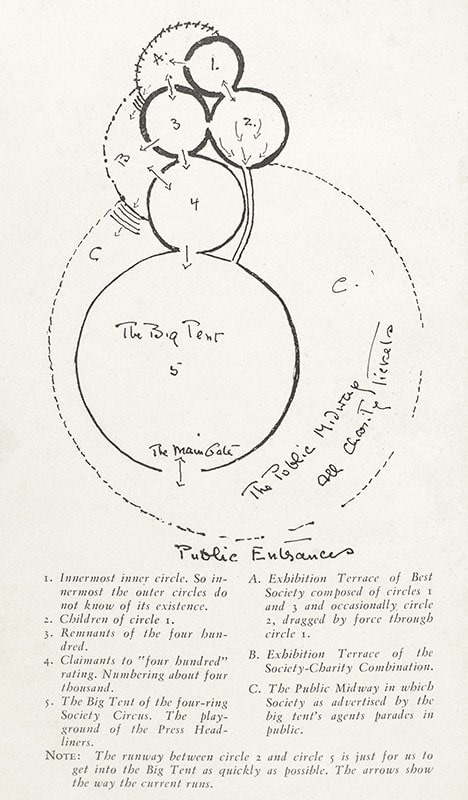 A.
1.
3
(2.)
B
4
C
C.
The Big Tent
5
The Main Gate
The Public Midway
All Charity
Public Entrances
1. Innermost inner circle. So in-
nermost the outer circles do
not know of its existence.
2. Children of circle 1.
3. Remnants of the four hun-
dred.
4. Claimants to "four hundred"
rating. Numbering about four
thousand.
5. The Big Tent of the four-ring
Society Circus. The play-
ground of the Press Head-
liners.
A. Exhibition Terrace of Best
Society composed of circles 1
and 3 and occasionally circle
2, dragged by force through
circle 1.
B. Exhibition Terrace of the
Society-Charity Combination.
C. The Public Midway in which
Society as advertised by the
big tent's agents parades in
public.
NOTE: The runway between circle 2 and circle 5 is just for us to
get into the Big Tent as quickly as possible. The arrows show
the way the current runs.